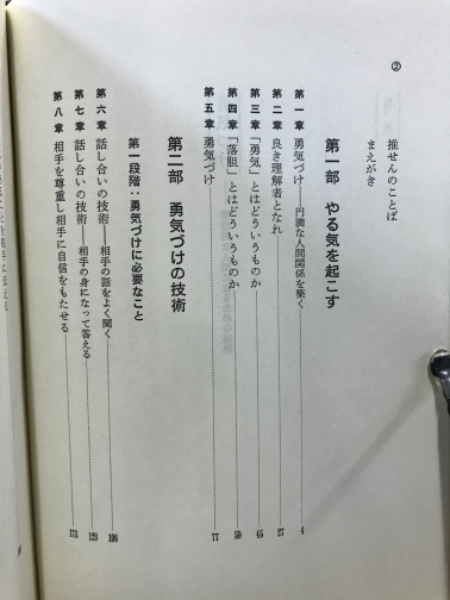 ②
推せんのことば
まえがき
第一部 やる気を起こす
第一章 勇気づけ——円満な人間関係を築く 4
第二章 良き理解者となれ 27
第三章 「勇気」とはどういうものか 45
第四章 「落胆」とはどういうものか 59
第五章 勇気づけ 77
第二部 勇気づけの技術
第一段階：勇気づけに必要なこと
第六章 話し合いの技術——相手の話をよく聞く 106
第七章 話し合いの技術——相手の身になって答える 123
第八章 相手を尊重し相手に自信をもたせる